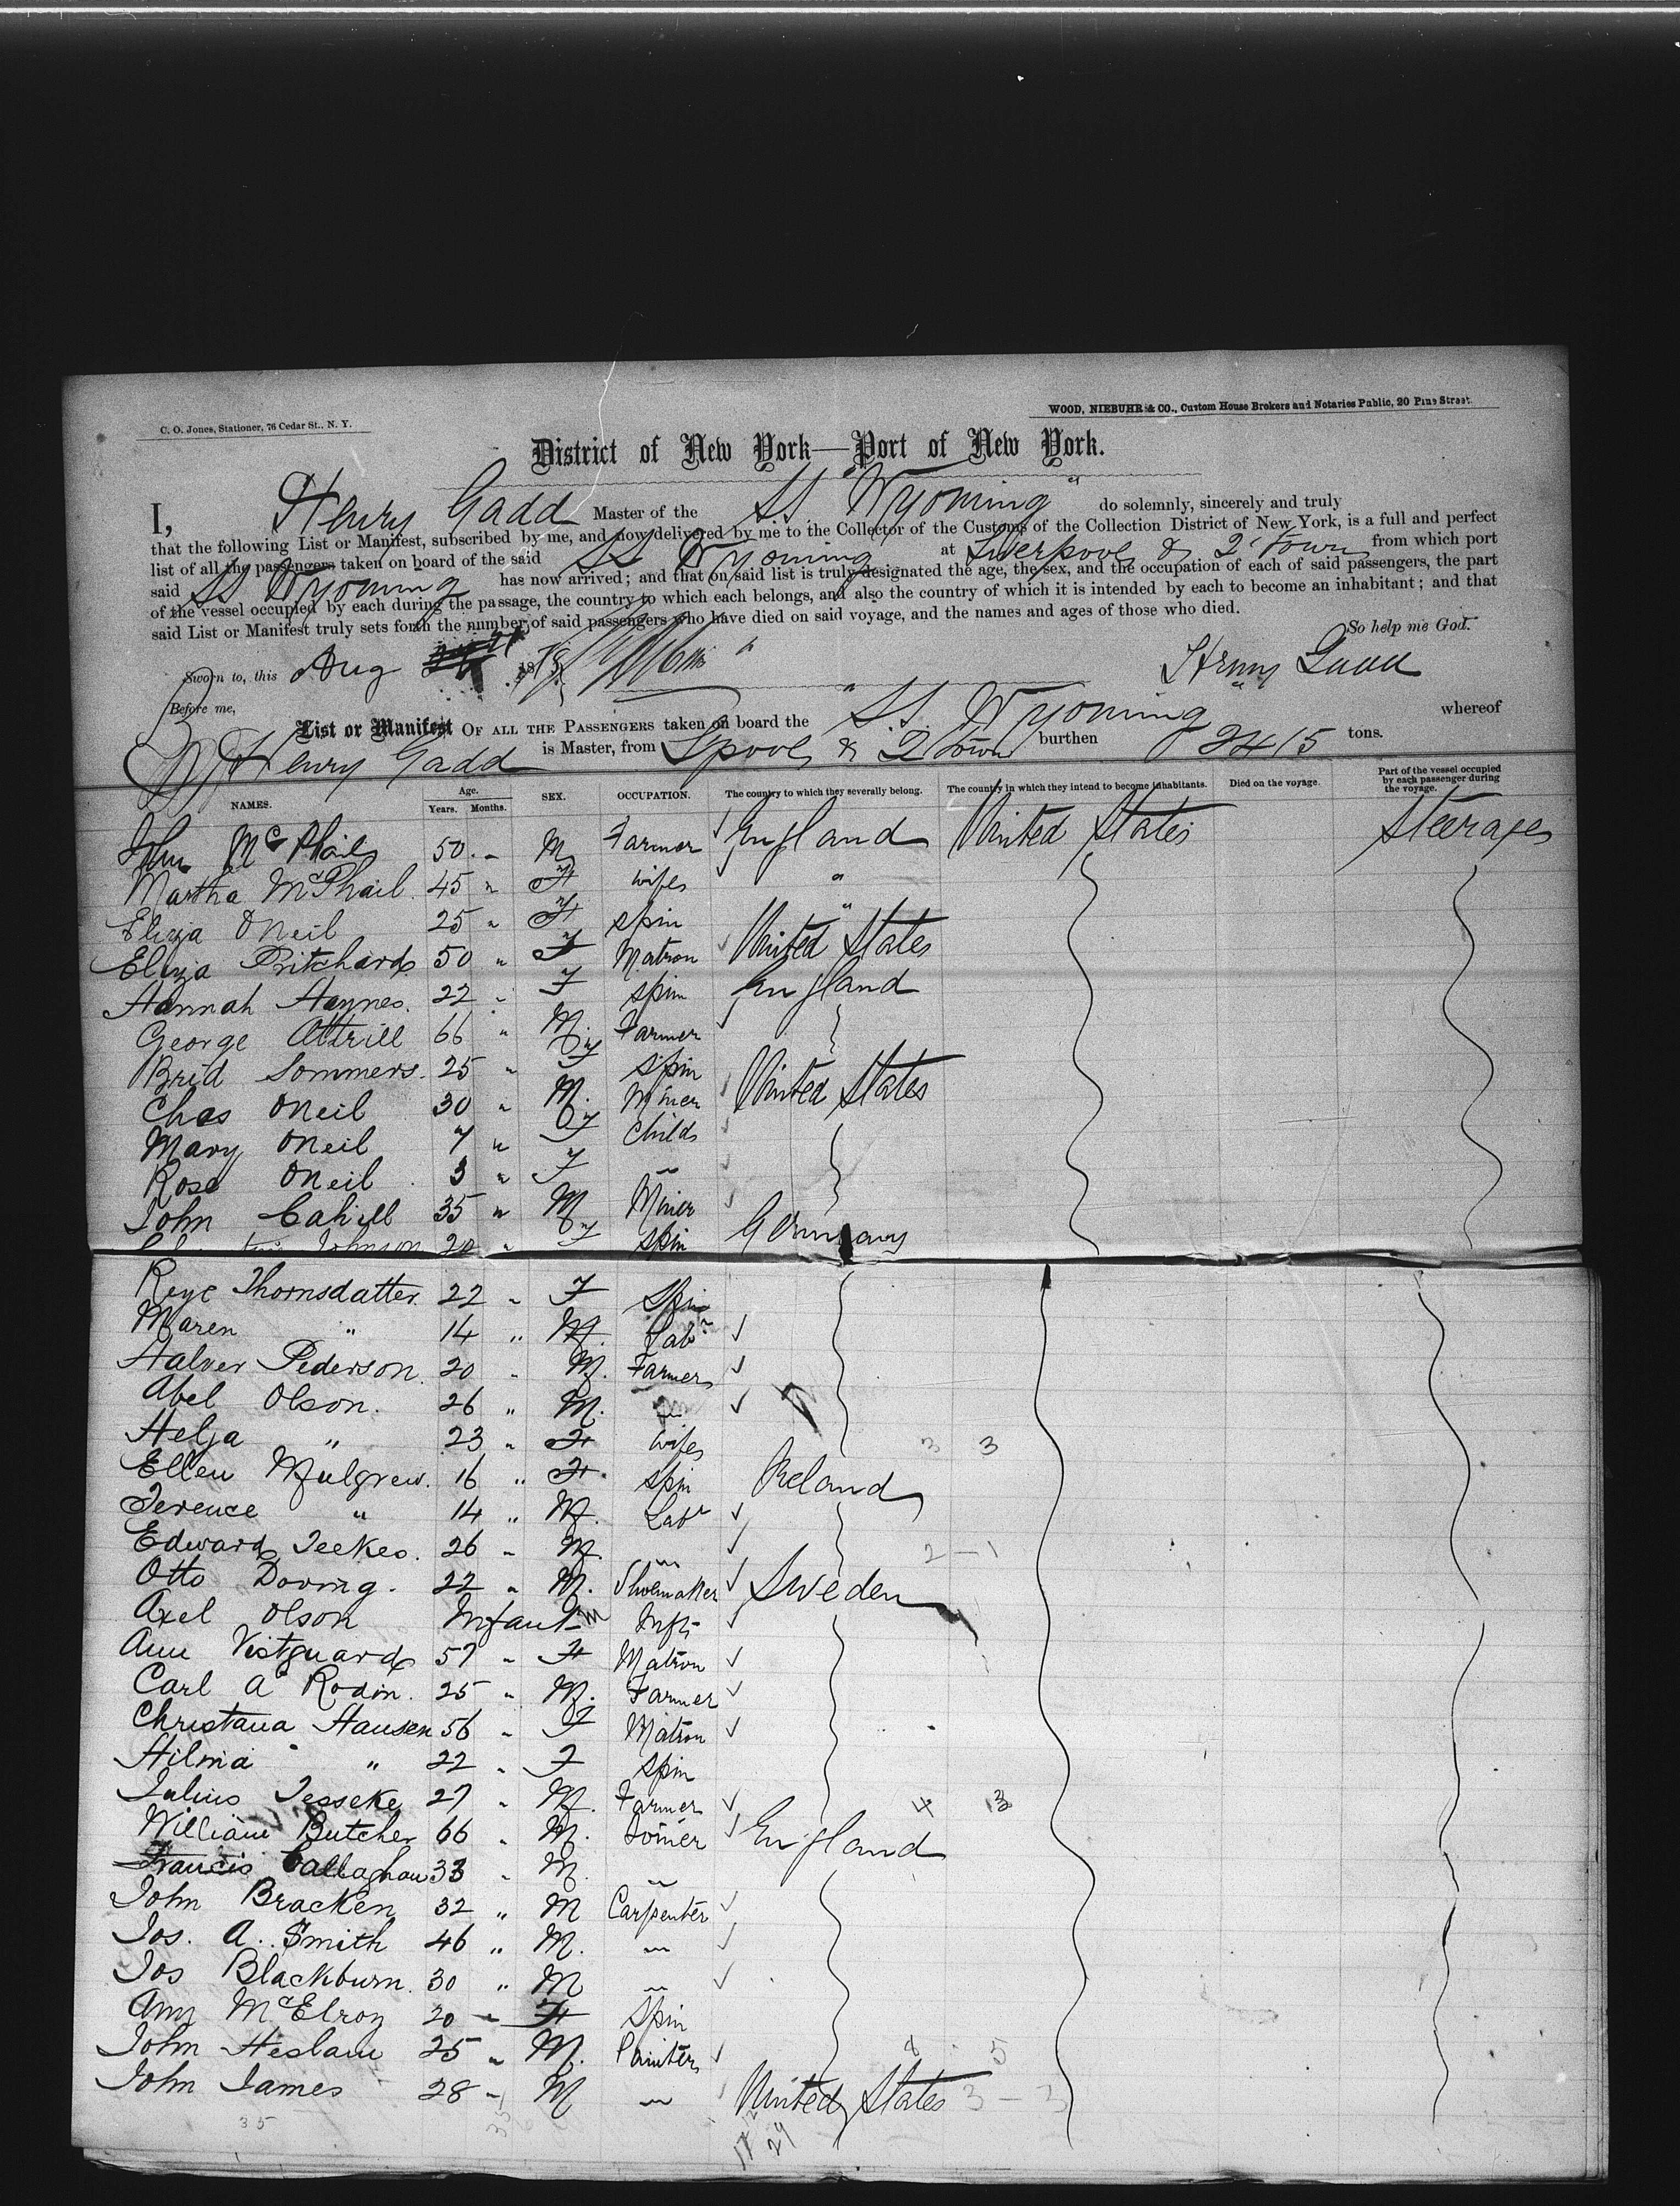 C. O. Jones, Stationer, 76 Cedar St., N. Y.
WOOD, NIEBUHR & CO., Custom House Brokers and Notaries Public, 20 Pine Street.
District of New York—Port of New York.
I, Henry Gadd Master of the SS. "Wyoming" do solemnly, sincerely and truly
that the following List or Manifest, subscribed by me, and now delivered by me to the Collector of the Customs of the Collection District of New York, is a full and perfect
list of all the passengers taken on board of the said SS Wyoming at Liverpool & Q'Town from which port
said SS Wyoming has now arrived; and that on said list is truly designated the age, the sex, and the occupation of each of said passengers, the part
of the vessel occupied by each during the passage, the country to which each belongs, and also the country of which it is intended by each to become an inhabitant; and that
said List or Manifest truly sets forth the number of said passengers who have died on said voyage, and the names and ages of those who died.
So help me God.
Sworn to, this Aug 187
Henry Gadd
Before me,
List or Manifest OF ALL THE PASSENGERS taken on board the SS. Wyoming whereof
Henry Gadd is Master, from Lpool & Q Town burthen 2415 tons.
NAMES. Age. Years. Months. SEX. OCCUPATION. The country to which they severally belong. The country in which they intend to become inhabitants. Died on the voyage. Part of the vessel occupied by each passenger during the voyage.
John McPhail 50 - M Farmer England United States Steerage
Martha McPhail 45 " F wife "
Eliza ONeil 25 " F spin "
Eliza Pritchard 50 " F Matron United States
Hannah Haynes 22 " F spin England
George Attrill 66 " M. Farmer
Brid Sommers 25 " F spin
Chas ONeil 30 " M. Miner United States
Mary ONeil 7 " F Child
Rose ONeil 3 " F "
John Cahill 35 " M Miner
Johnson 20 " F spin Germany
Thornsdatter 22 " F Spin
Maren " 14 " M. Labr
Halver Pederson 20 " M. Farmer
Abel Olson 26 " M. "
Helja " 23 " F wife 3 3
Ellen Mulgrew 16 " F spin Ireland
Terence " 14 " M. Labr
Edward Teekes 26 " M. " 2-1
Otto Doring 22 " M. Shoemaker Sweden
Axel Olson Infant M Inft
Ann Vistguard 57 " F Matron
Carl A Rodin 25 " M. Farmer
Christana Hansen 56 " F Matron
Hilma " 22 " F spin
Julius Tesseke 27 " M. Farmer 4 3
William Butcher 66 " M. Joiner England
Francis Callaghan 33 " M. "
John Bracken 32 " M Carpenter
Jos. A. Smith 46 " M. "
Jos Blackburn 30 " M "
Amy McElroy 20 - F Spin
John Heslam 25 " M. Painter 8 5
John James 28 - M " United States 3 -
35